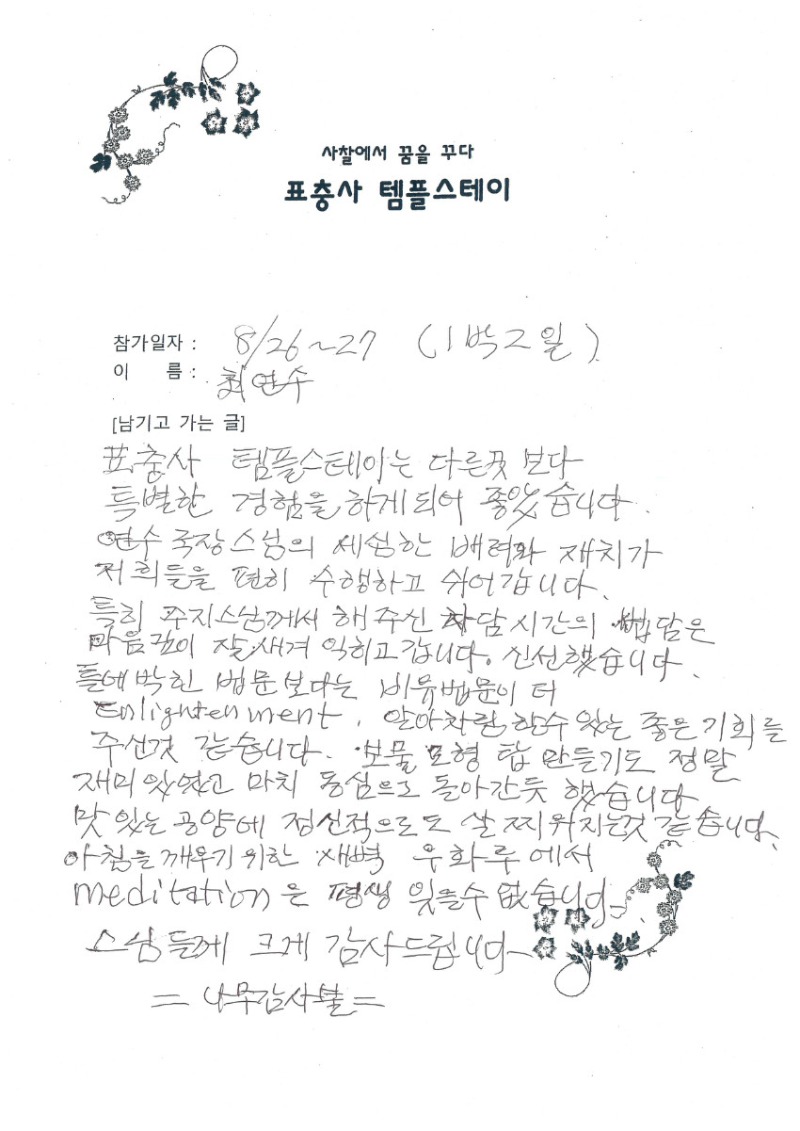 사찰에서 꿈을 꾸다
표충사 템플스테이
참가일자 : 8/26~27 (1박2일)
이 름 : 최연수
[남기고 가는 글]
표충사 템플스테이는 다른곳 보다
특별한 경험을 하게되어 좋았습니다.
연수국장스님의 세심한 배려와 재치가
저희들을 편히 수행하고 쉬어갑니다.
특히 주지스님께서 해주신 차담시간의 법담은
마음깊이 잘새겨 익히고갑니다. 신선했습니다.
틀에박힌 법문보다는 비유법문이 더
Enlightenment, 알아차림 할수있는 좋은기회를
주신것 같습니다. 보물 모형 탑 만들기도 정말
재미있었고 마치 동심으로 돌아간듯 했습니다
맛있는 공양에 정신적으로도 살찌워지는것 같습니다.
아침을 깨우기 위한 새벽 우화루에서
meditation은 평생 잊을수 없습니다.
스님들께 크게 감사드립니다
= 나무감사불 =